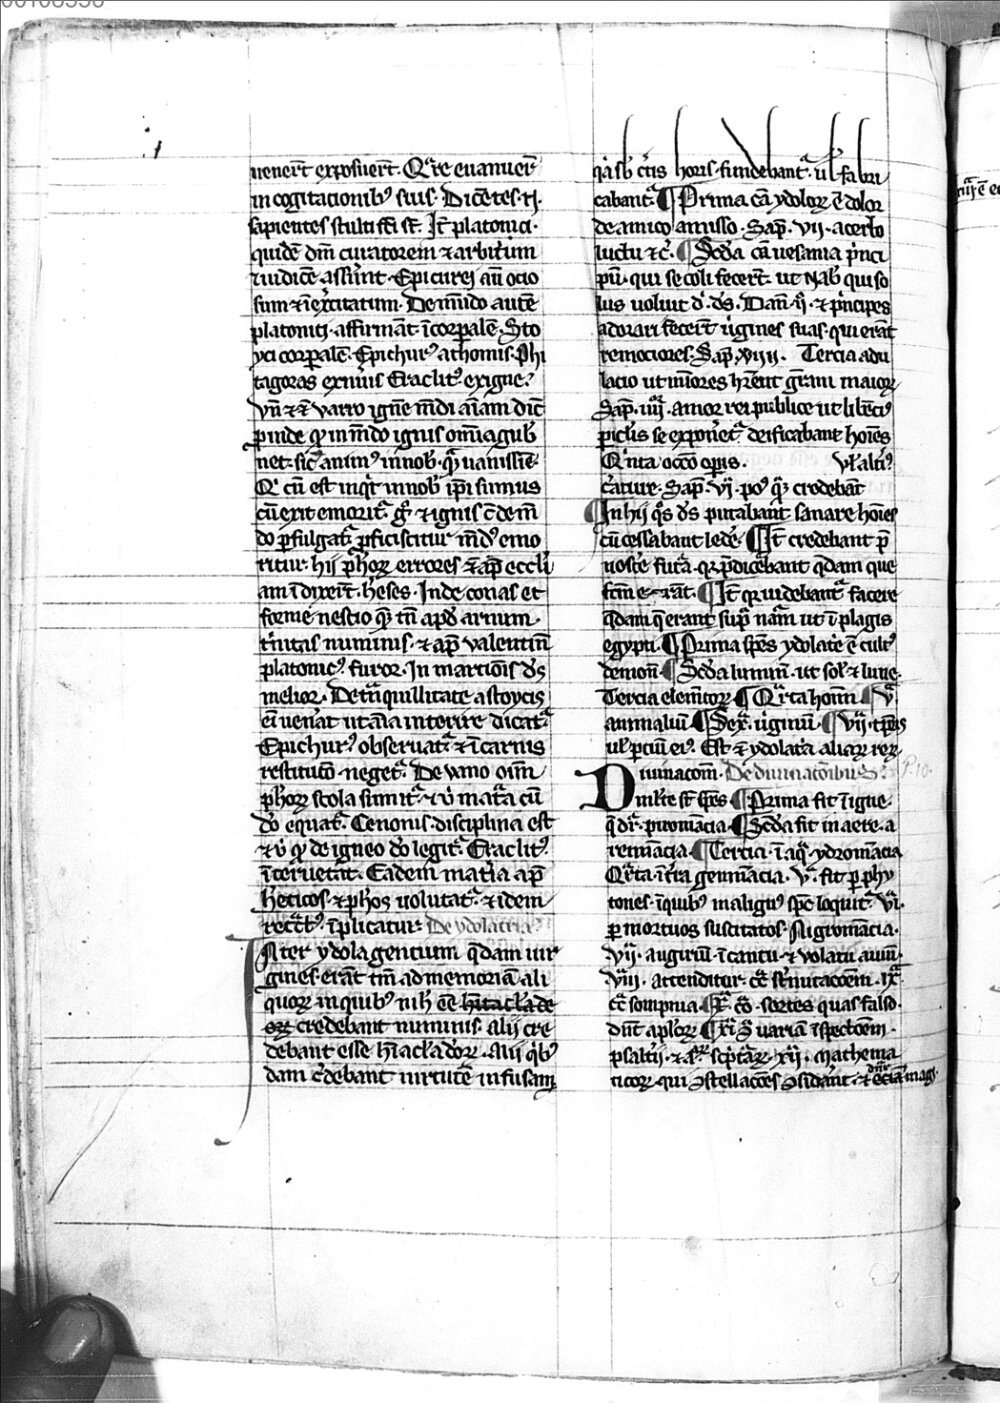 uenerͭt exposuerͭt. Qͣre euanuerͭ
in cogitacionibꝰ suis. Dicētes. rͭ.
sapientes stulti fc̄i st̄. Itͫ platonici.
quidē dm̄ curatorem ⁊ arbitrum
⁊ iudicē asserūt. Epicurei aūt ocio
sum ⁊ inexcitatum. De mūdo autē
platonici affirmāt īcorpalē. Sto
yci corpalē. Epichurꝰ athomis. Phi
tagoras
Vn̄ ⁊ Varro ignē mūdi aīam dic̄
ꝑinde ꝙ in mūdo ignis om̄ia gub̄
net. sicͭ animꝰ in nob̄.
Qͥ cū est inqͥt in nob̄ ip̄i sumus
cū exit emorit᷑. ⁊ ignis
do ꝑfulgat᷑ ꝓficiscitur mūdꝰ emo
ritur. hii ph̄oꝝ errores ⁊ ap̄ eccl̄i
am īdixer̄t. h̄eses. Inde conas et
forme nescio tn̄ apd̄ arrium.
t̄nitas numinis. ⁊ ap̄ valentin̄
platonicꝰ furor. In marciōis dꝰs
melior. De tͣnquillitate a stoycis
ei uenāt ut aīa interire dicat᷑
Epichurꝰ obseruat᷑. ⁊ ī carnis
restitutō neget᷑. De uano om̄i
ph̄oꝝ scola sumit᷑. ⁊ ubͥ mat̄a cū
do equat᷑. Cenonis disciplina est
⁊ ubͥ ꝙ de igneo do legit᷑. Eraclitꝰ
īteruet̄at. Eadem mat̄ia ap̄
h̄eticos ⁊ ph̄os uolutat᷑. ⁊ idem
īplicatur. De ydolatria.
Inter ydola gentium qͣdam uir
gines erāt tm̄ ad memoriā ali
quoꝝ in quibꝰ nih̄ ēē
credebant numinis. alij cre
debant esse Alij qͥbꝰ
dam cͬdebant uirtutē infusam
cͬtis horis. fundebant᷑. ul̄ fabri
cabant᷑. ¶ Prima cā ydoloꝝ ē dolor
de amico amisso. Sap. vii. acerbo
luctu ⁊c̄. ¶ Scd̄a cā uesania pͥnci
pū. qui se coli fecer̄t. ut Nab̄ qui so
lus uoluit dͥ. dꝰs. Dan. ij. ⁊ pͥncipes
adorari fecer̄t ūgines suas. qui erāt
remociores. Sap. xiiii. Tercia adu
lacio ut mīores hr̄ent gr̄am maioꝝ
Sap. iiii. amor rei publice ut libēciꝰ
piclīs se exponēt᷑. deificabant hoīes
Qͥnta occō opis. ul̄ altͥꝰ
cͬature. Sap. vi. credebāt
¶ In hij qͥs dꝰs putabant sanare hoīes
cū cessabant ledē. ¶ Itͫ credebant p̄
noscē futͣa. qꝛ p̄dicebant qͣdam que
¶ Itͫ qꝛ uidebant᷑ facere
qͣdam q̄ erant supͣ nām ut ī plagis
egypti. ¶ Prima sp̄es ydolatͥe ē cultꝰ
demon̄. ¶ Scd̄a lumin̄. ut sol̄ ⁊ lune.
Tercia elem̄toꝝ ¶ Qͣrta homin̄ ¶ Vͣ
animaliū ¶ Sexͣ. ūginū. ¶ Viiͣ. tp̄ris
ul̄ ꝑciū eiꝰ. Est ⁊ ydolatͥa aliaꝝ reꝝ
Diuinacōm. De diuinacōibus. P. 10.
multe st̄ sp̄es ¶ Prima fit ī igne.
q̄ dr̄. piromācia. ¶ Scd̄a fit in aere. a
remācia. ¶ Tercia. ī aqͣ. ydromācia
Qͣrta. ī tͬra geomācia. Vͣ. fit ꝑ phy
tones. ī quibꝰ malignꝰ sp̄c̄ loquit᷑. Viͣ.
ꝑ mortuos suscitatos. Nigromācia.
Viiͣ. auguriū. ī cantu. ⁊ volatu auiū.
Viiiͣ. attenditur. cͬͣ st̄nutacōem. IXͣ
cͬͣ sompnia. ¶ Xͣ. sortes quas falso.
dn̄t apl̄oꝝ ¶ Xiͣ. uariā īspectōem.
psaltͥi. ⁊ scͥptͣaꝝ. xijͣ. mathema
ticoꝝ. qui ꝯstellacōes ꝯsidāt.